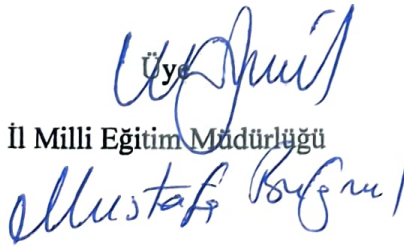 Üye
İl Milli Eğitim Müdürlüğü
Mustafa